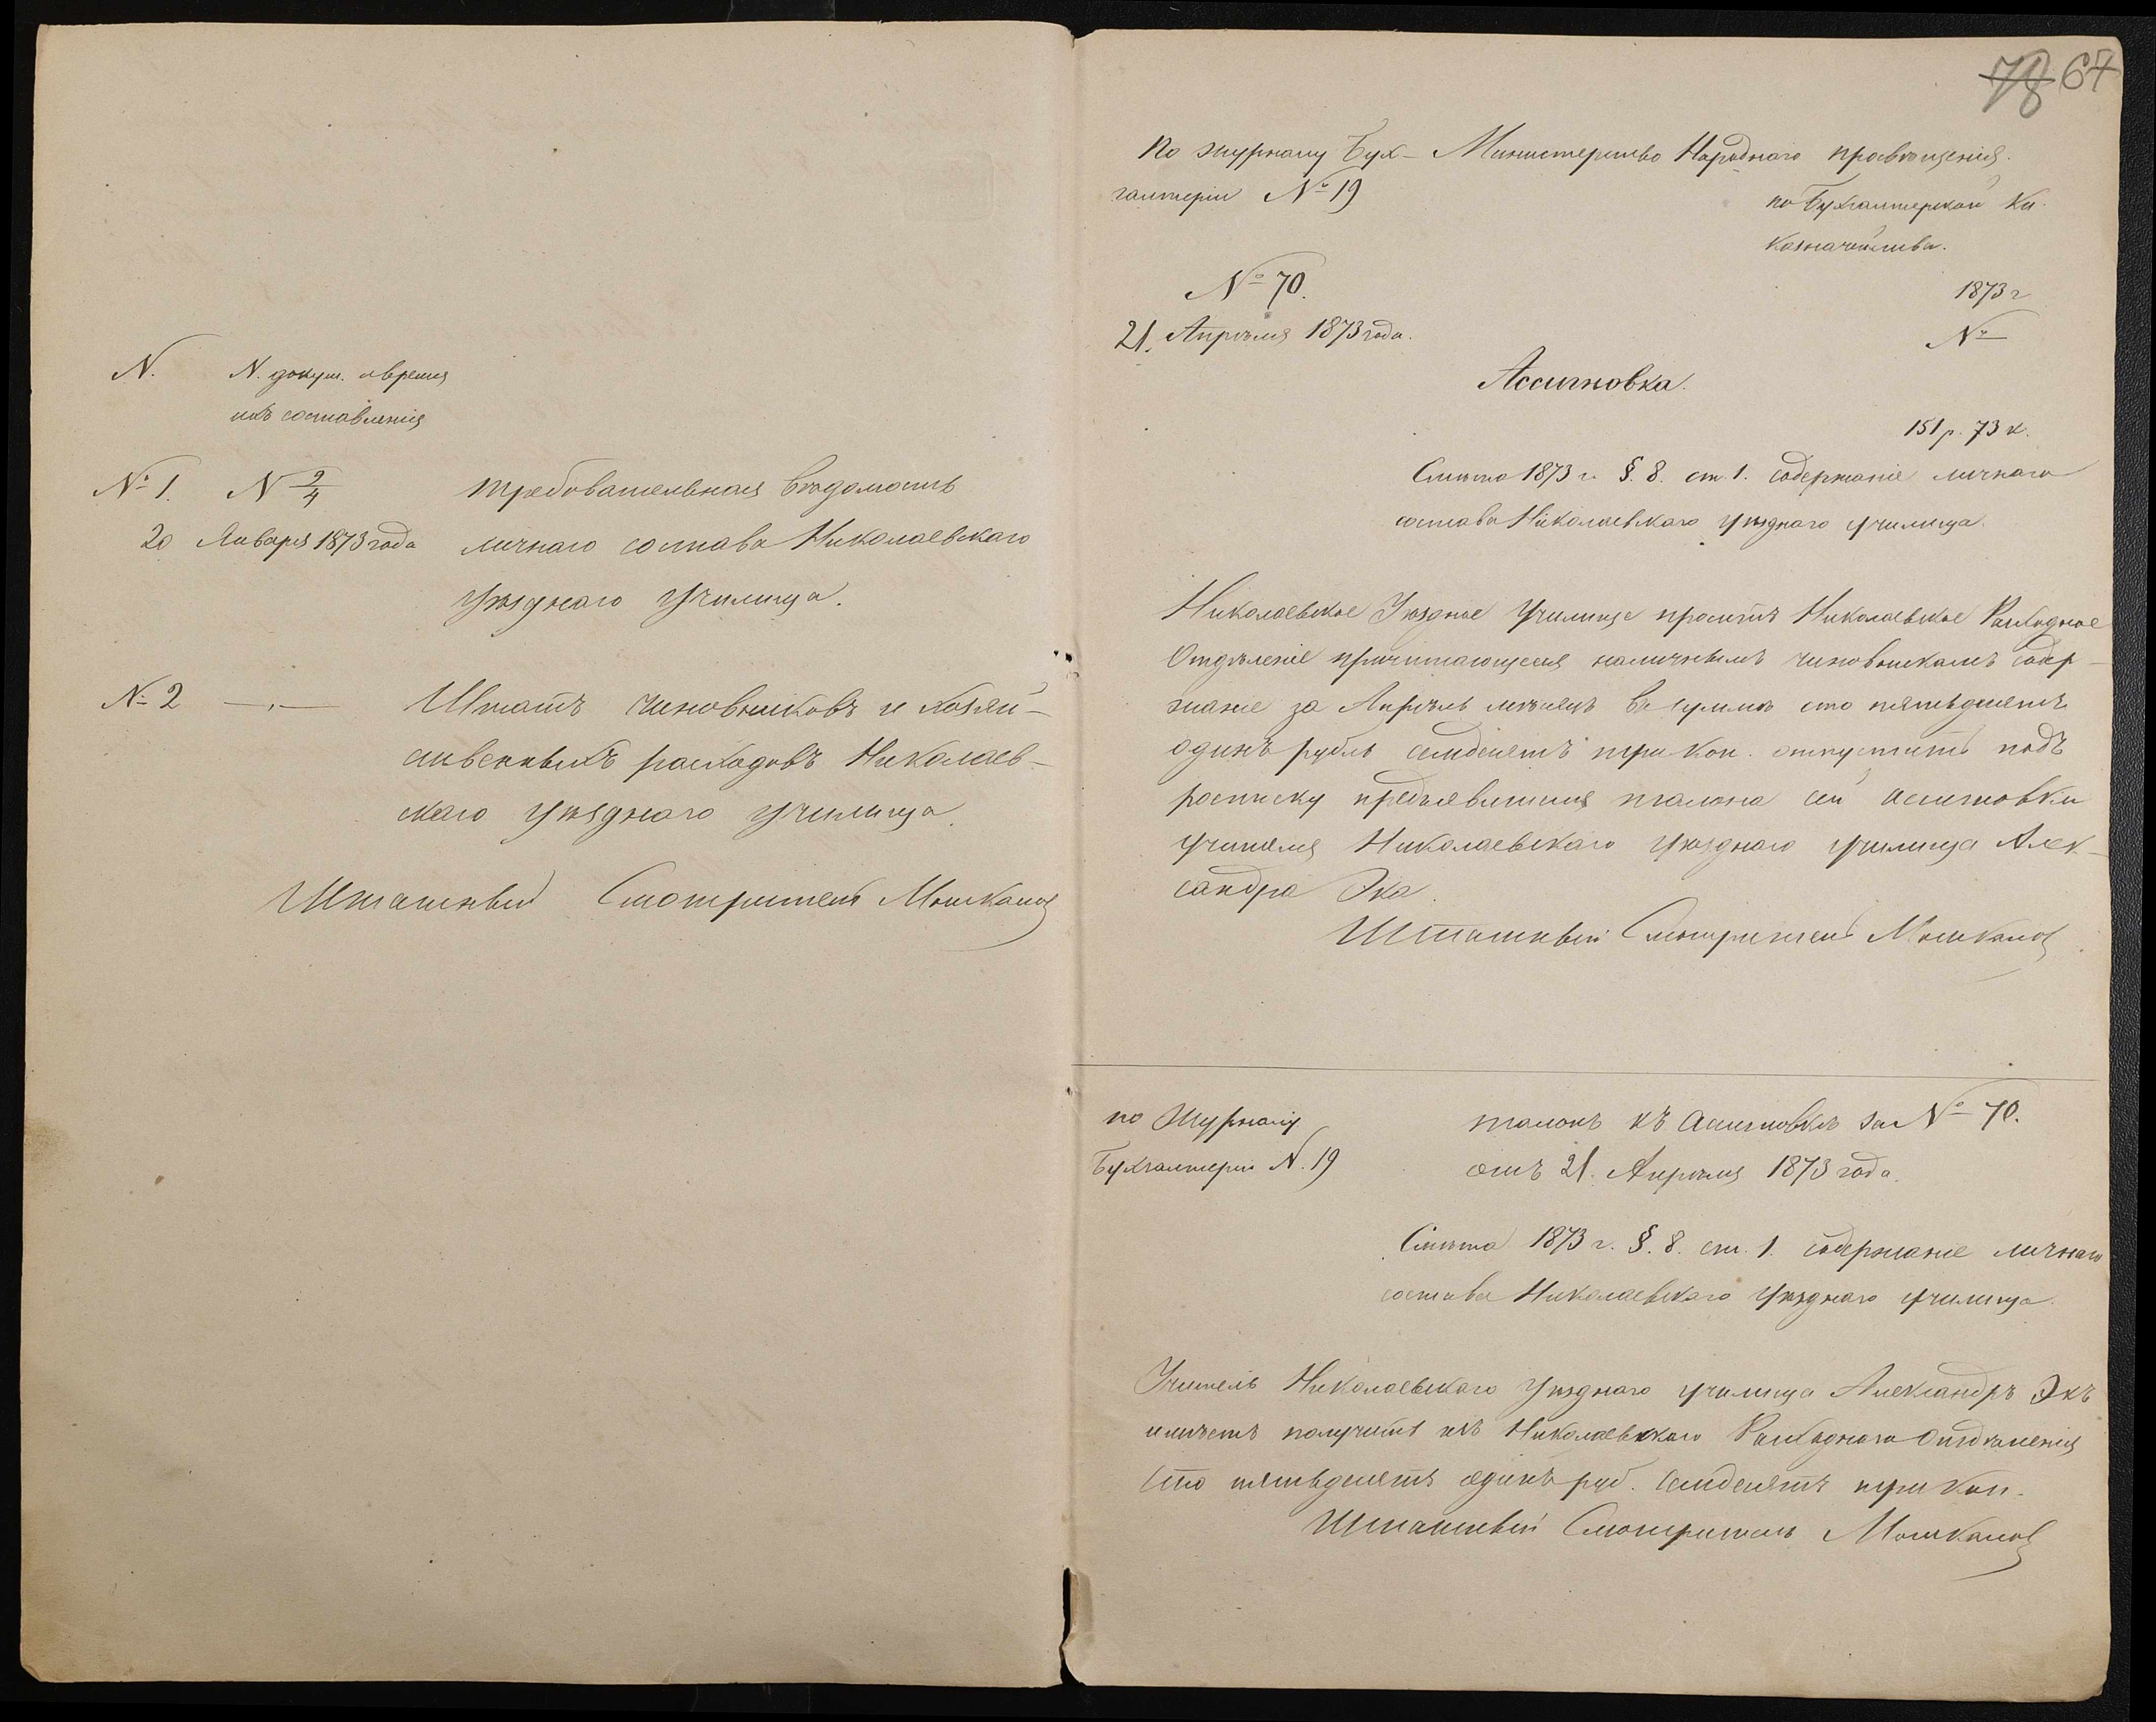 N. N. докум. и время
ихъ составленія
№ 1. N 2/4 требовательная вѣдомость
20 Января 1873 года личнаго состава Николаевскаго
уѣзднаго училища.
№ 2 —„— Штатъ чиновниковъ и хозяй-
ственныхъ расходовъ Николаев-
скаго уѣзднаго училища.
Штатный Смотритель
78 67
По журналу Бух- Министерство Народнаго просвѣщенія.
галтеріи № 19 по Бухгалтерской Кн.
Казначейства.
№ 70. 1873 г
21. Апрѣля 1873 года. №
Ассигновка.
151 р. 73 к.
Смѣта 1873 г. §. 8. ст. 1. содержаніе личнаго
состава Николаевскаго уѣзднаго училища.
Николаевское Уѣздное Училище проситъ Николаевское Расходное
Отдѣленіе причитающееся наличнымъ чиновникамъ содер-
жаніе за Апрѣль мѣсяцъ въ суммѣ сто пятьдесятъ
одинъ рубль семдесятъ три коп. отпустить подъ
росписку предъявителя талона сей ассигновки
учителя Николаевскаго уѣзднаго училища Алек-
сандра Эка.
Штатный Смотритель
по Журналу талонъ къ Асигновкѣ за № 70.
Бухгалтеріи N. 19 отъ 21. Апрѣля 1873 года.
Смѣта 1873 г. §. 8. ст. 1. содержаніе личнаго
состава Николаевскаго уѣзднаго училища.
Учитель Николаевскаго уѣзднаго училища Александръ Экъ
имѣетъ получить изъ Николаевскаго Расходнаго Отдѣленія
Сто пятьдесятъ одинъ руб. семдесятъ три коп.
Штатный Смотритель